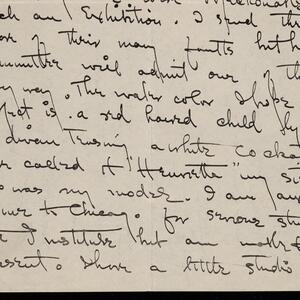 ch an Exhibition. I send this
of their many faults but h
committee will admit one of th
way. The water color I hope
is a red haired child
divan teasing a white cockatoo
called it "Henrietta" my si
was my model. I am
to Chicago. for serious stu
Institute but am
sent. I have a little studio